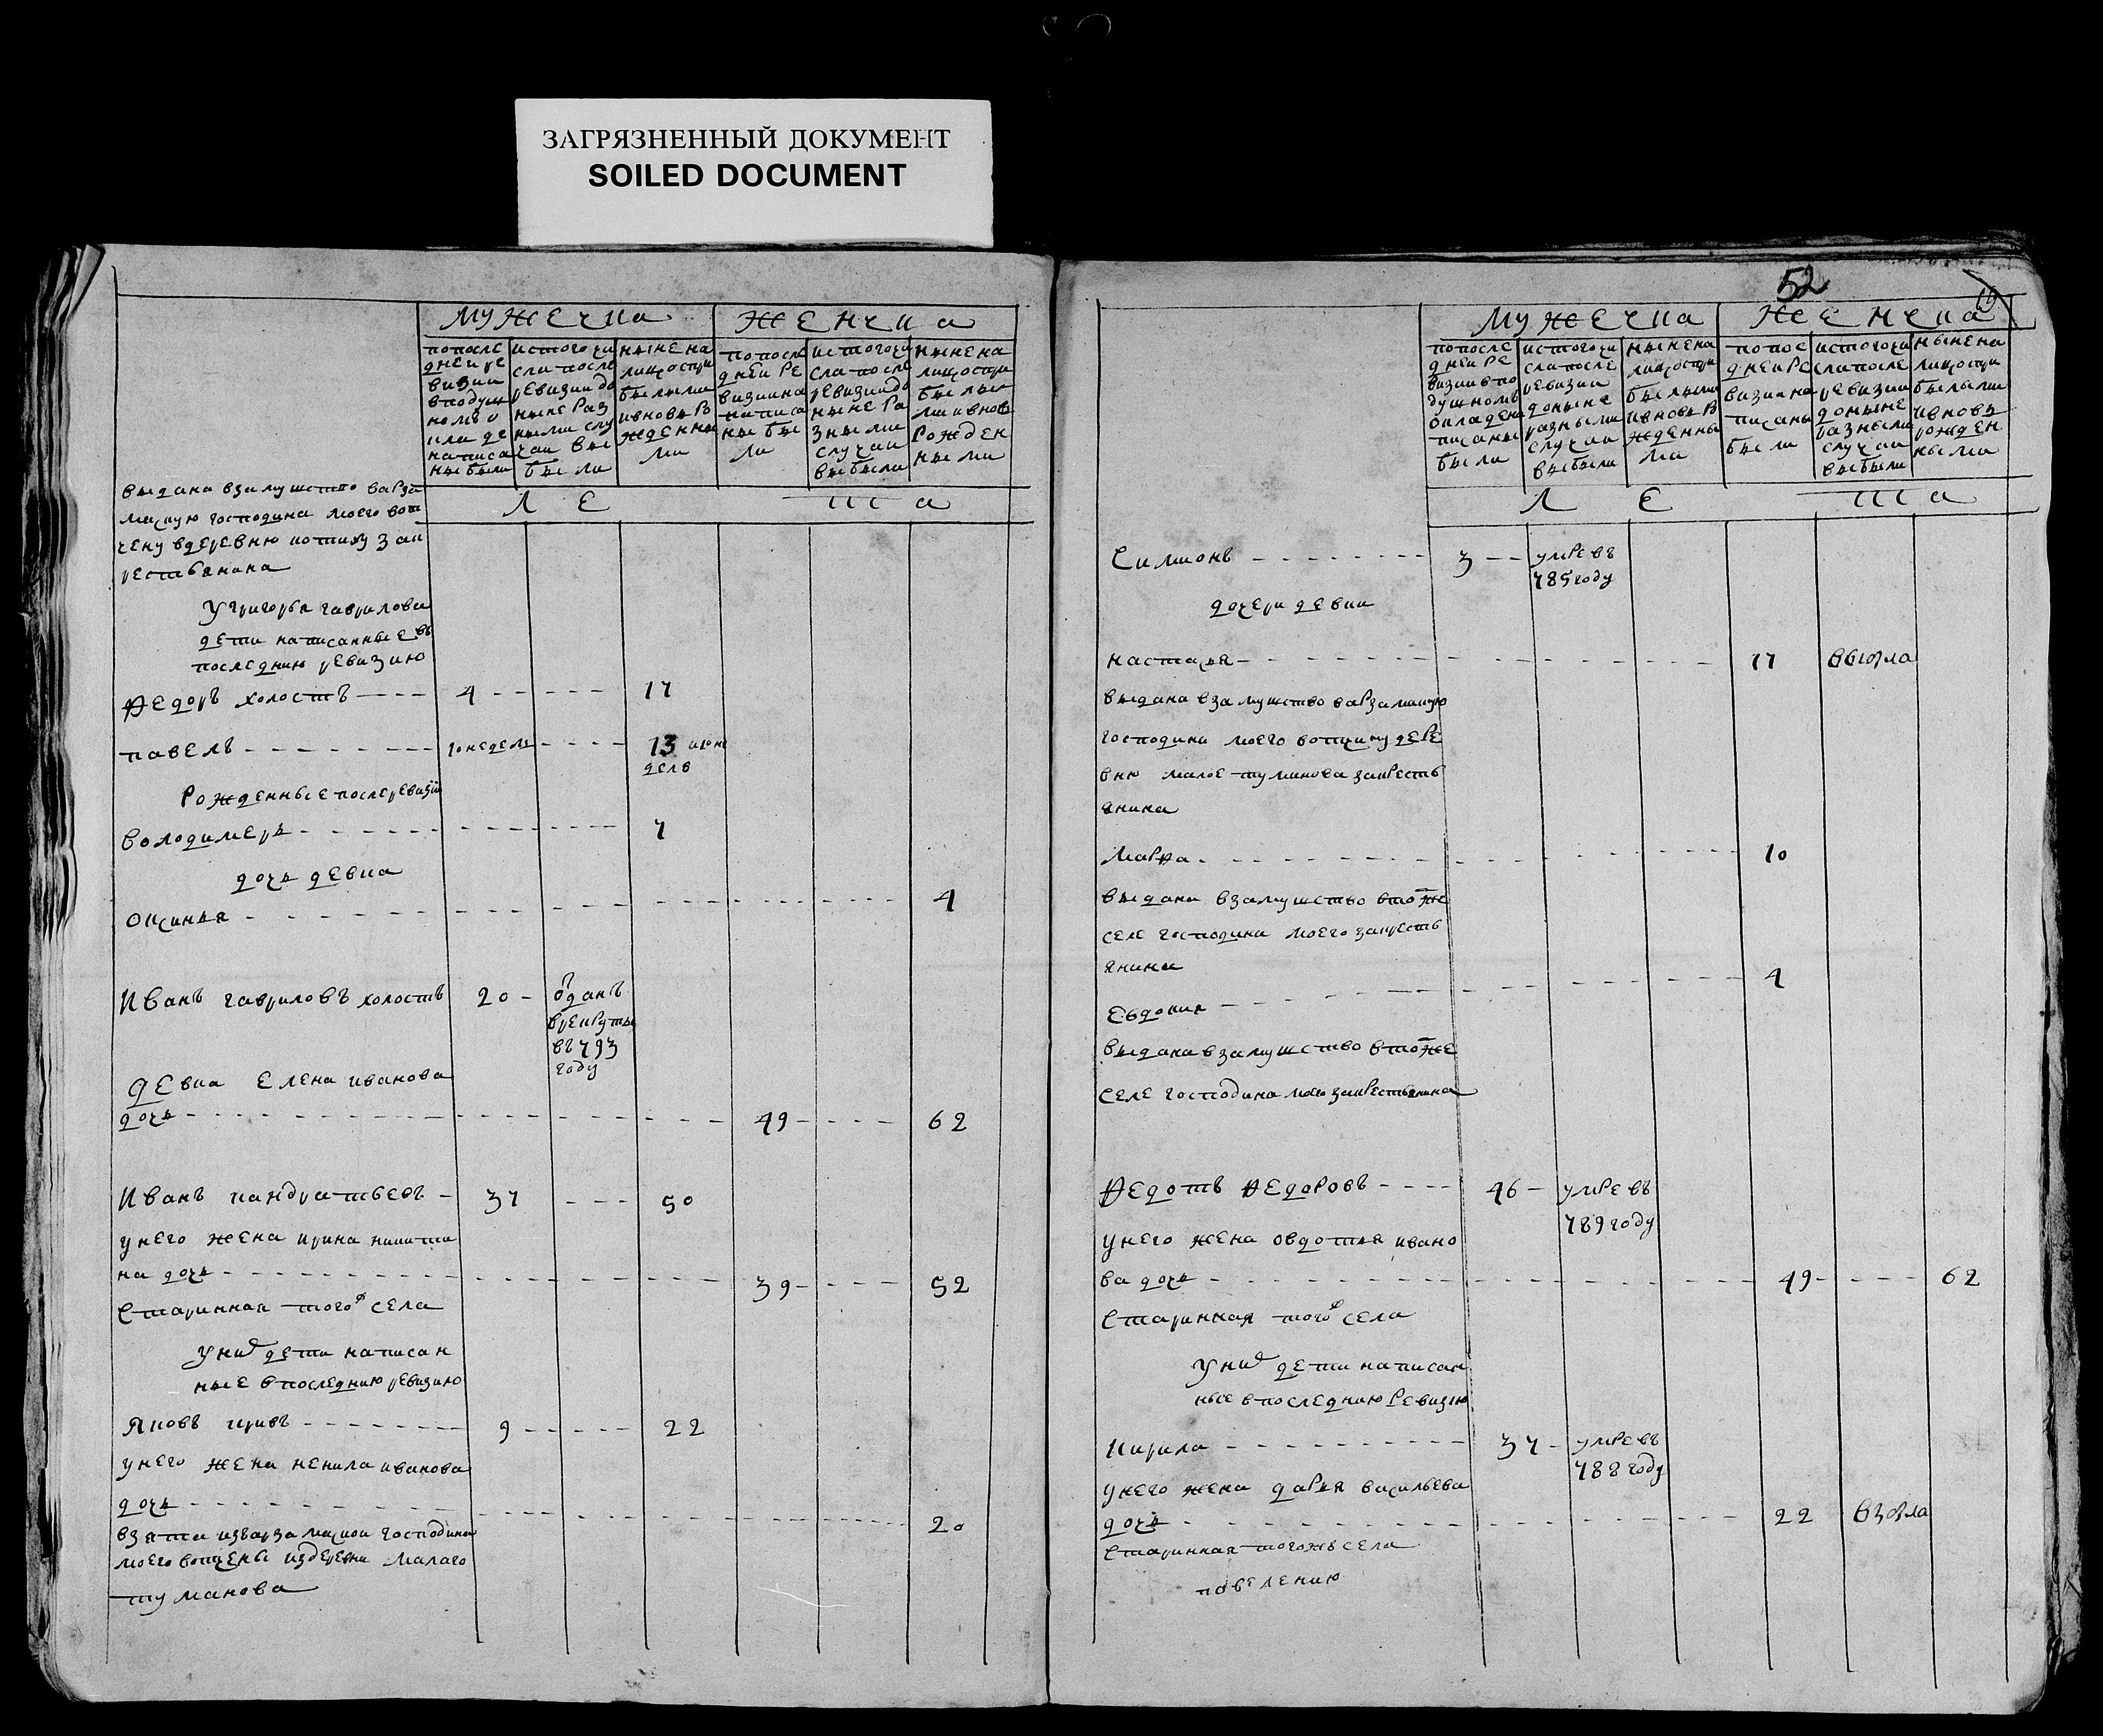 ЗАГРЯЗНЕННЫЙ ДОКУМЕНТ
SOILED DOCUMENT
мужеска
женска
попосле
дней ре
визии
вподуш
номъ о
написа
ны были
истого чи
сла после
ревизии до
ныне раз
ными слу
чаи вы
были
ныне на
лицо спри
былыми
ивновь ро
жденны
ми
попосле
дней ре
визии на
писа
ны бы
ли
истого чи
сла после
ревизии до
ныне ра
зными
случаи
выбыли
ныне на
лицо спри
былы
ми ивновь
рожден
ными
ле
та
выдана взамужство варза
маскую господина моего вот
чену вдеревню
рестьянина
У григорья гаврилова
дети написанные въ
последнию ревизию
Ѳедоръ холостъ 4 17
павелъ 10 недель 13 и10 не
дель
Рожденные после ревизіи
володимеръ 7
дочь девка
оксинья 4
Иванъ гавриловъ холостъ 20 ѿданъ
врекруты
въ 793
году
девка елена иванова
дочь 49 62
Иванъ кандратьевъ 37 50
унего жена ирина никити
на дочь 39 52
старинная того ж села
уних дети написан
ные впоследнию ревизию
Яковъ кривъ 9 22
унего жена ненила иванова
дочь 20
взята изварзамаской господина
моего вотчены издеревни малаго
туманова
52
мужеска
женска
попосле
дней ре
визии впо
душномъ
окладе на
писаны
были
истого чи
сла после
ревизии
доныне
разными
случаи
выбыли
ныне на
лицо спри
былыми
ивновь ро
жденны
ми
попос
дней ре
визии на
писаны
были
истого чи
сла после
ревизии
доныне
разными
случаи
выбыли
ныне на
лицо спри
былыми
ивновь
рожден
ными
ле
та
Симионъ 3 умре въ
785 году
дочери девки
настасья 17
выдана взамужство варзамаскую
господина моего вотчину дере
вню малое туманова закресть
янина
марѳа 10
выдана взамужство втоже
селе господина моего закресть
янина
4
евдокия
выдана взамужство втоже
селе господина моего закрестьянина
Ѳедотъ Ѳедоровъ 46 умре въ
789 году
унего жена овдотья ивано
ва дочь 49 62
старинная того ж села
уних дети написан
ные впоследнию ревизию
кирила 37 умре въ
788 году
унего жена дарья васильева
дочь 22
старинная тогожъ села
павелению